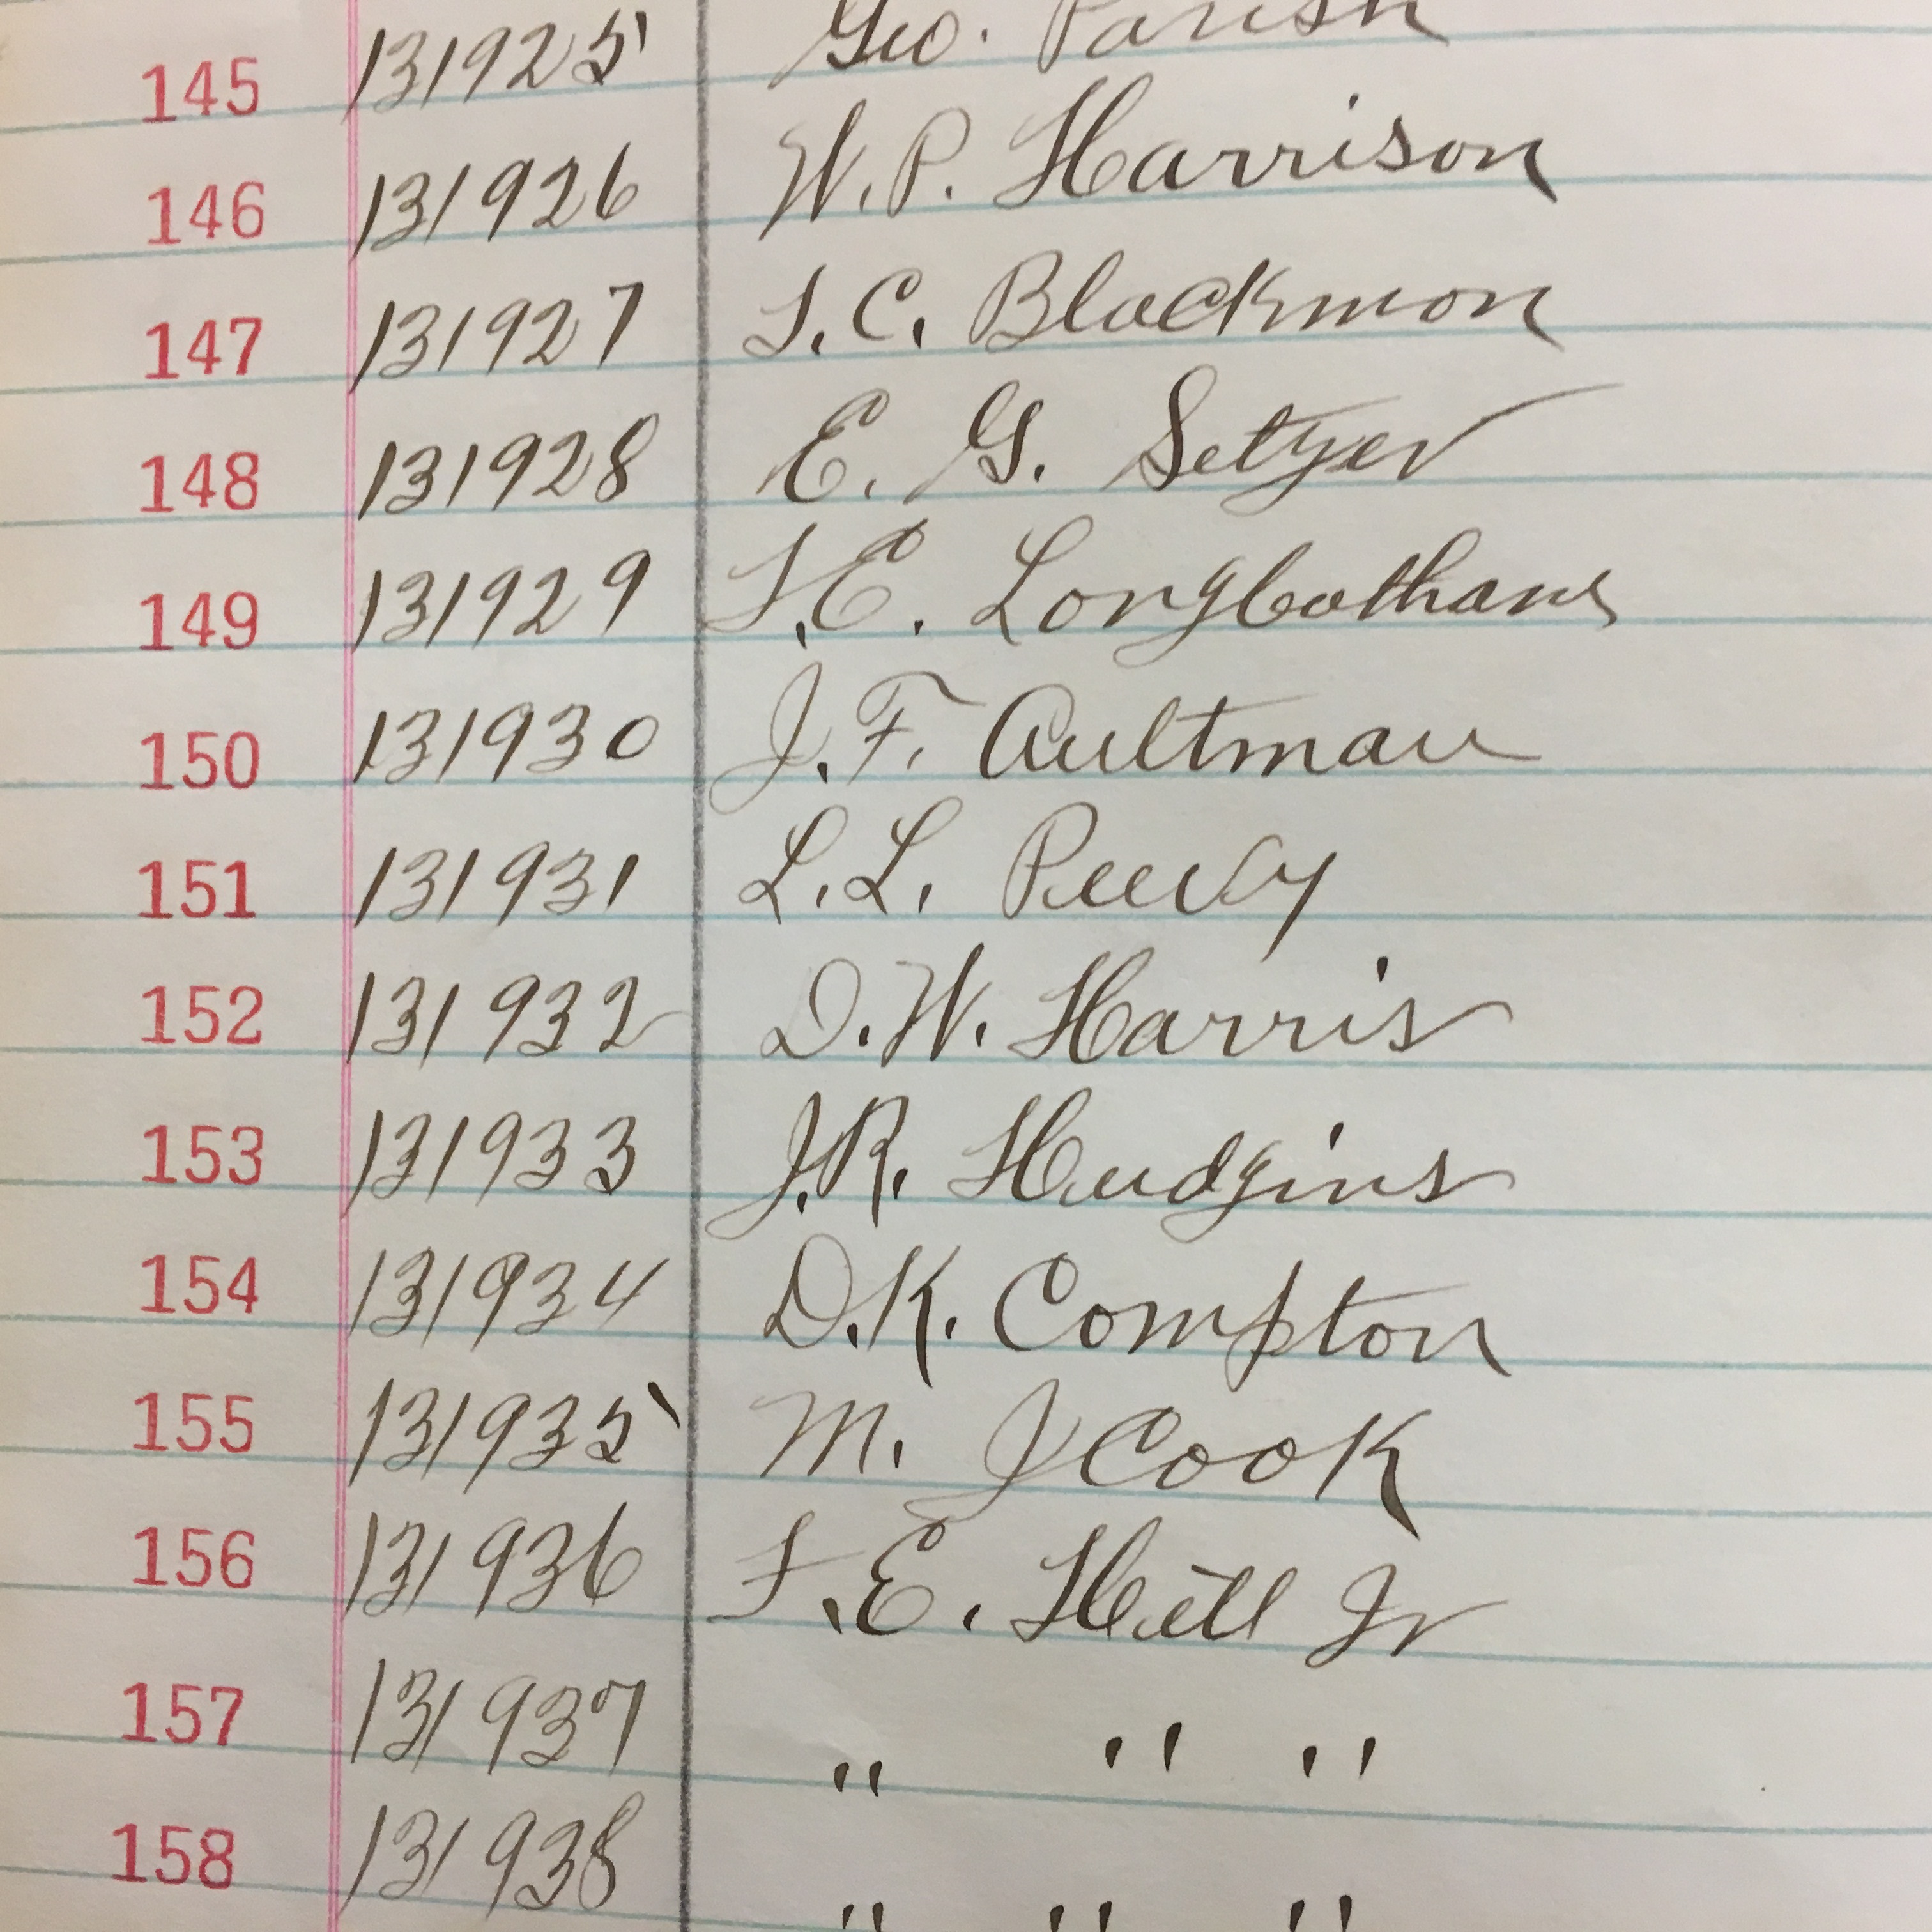 145 131925 Geo. Parish
146 131926 W.P. Harrison
147 131927 T.C. Blackmon
148 131928 E. G. Setzer
149 131929 T.E. Longbothans
150 131930 J.F. Aultman
151 131931 L.L. Peevy
152 131932 D.W. Harris
153 131933 J.R. Hudgins
154 131934 D.K. Compton
155 131935 M. J Cook
156 131936 F.E. Hill Jr
157 131937 " " "
158 131938 " " "